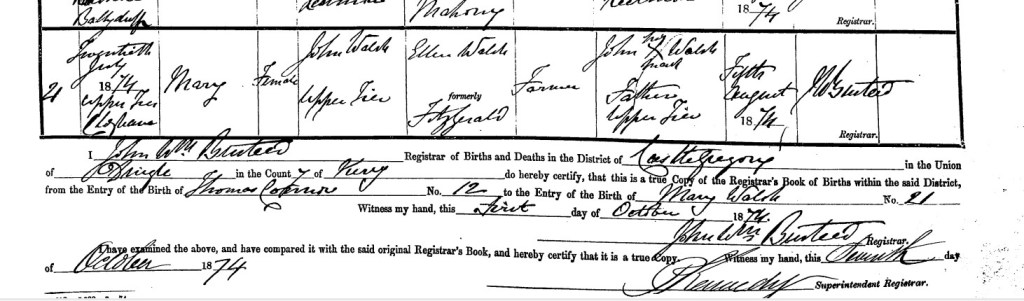 Ballyduff
Mahony
1874
Registrar.
21
Twentieth July 1874 Upper Tier Cloghane
Mary
Female
John Walsh Upper Tier
Ellen Walsh formerly Fitzgerald
Farmer
John X Walsh his mark Father Upper Tier
Fifth August 1874
J W Busteed
Registrar.
I John Wm Busteed Registrar of Births and Deaths in the District of Castlegregory in the Union
of Dingle in the County of Kerry do hereby certify, that this is a true Copy of the Registrar's Book of Births within the said District,
from the Entry of the Birth of Thomas Connor No. 12 to the Entry of the Birth of Mary Walsh No. 21
Witness my hand, this First day of October 1874.
John Wm Busteed Registrar.
I have examined the above, and have compared it with the said original Registrar's Book, and hereby certify that it is a true Copy. Witness my hand, this Seventh day
of October 1874
Kennedy Superintendent Registrar.